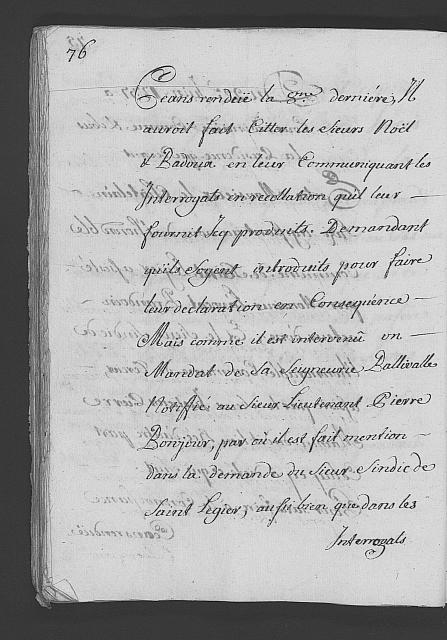 76
Ceans rendeüe la 8me. derniére, Il
auroit fait Citter les Sieurs Noël
& Badoux en leur Communiquant les
Interrogats en recollation quil leur –
fournit Icy produits. Demandant
quils Soyent introduits pour faire
leur declaration en Consequence –
Mais comme il est intervenû un –
Mandat de Sa Seigneurie Ballivalle
Notiffié au Sieur Lieutenant Pierre
Bonjour, par où il est fait mention –
dans la demande du Sieur Sindic de
Saint Legier, aussi bien que dans les
Interrogats